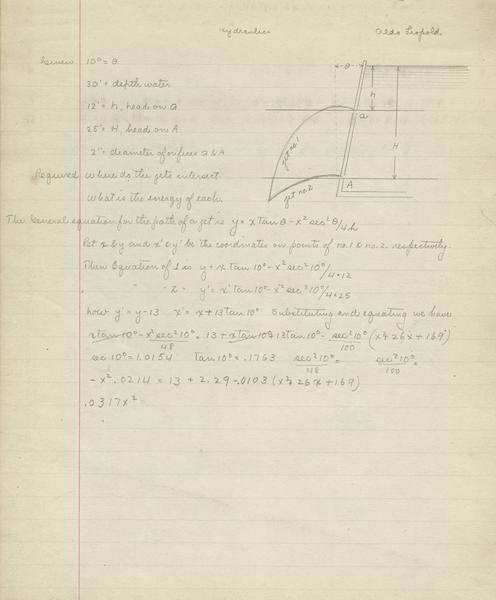 Hydraulics Aldo Leopold
Given 10° = θ
30' = depth water
12' = h, head on a
25' = H, head on A
2" = diameter of orifices a & A
Required Where do the jets intersect.
What is the energy of each.
θ
h
a
H
A
jet no. 1
jet no. 2
The General equation for the path of a jet is y = x tan θ - x² sec² θ/4h
Let x & y and x' & y' be the coordinates on points of no. 1 & no. 2 respectively.
Then Equation of 1 is y = x tan 10° - x² sec² 10°/4·12
" " " 2 " y' = x' tan 10° - x'² sec² 10°/4×25
Now y' = y-13 x' = x+13 tan 10° Substituting and equating we have
x tan 10° - x² sec² 10°/48 = 13 + x tan 10° + 13 tan 10° - sec² 10°/100 (x² + 26x + 169)
sec 10° = 1.0154 tan 10° = .1763 sec² 10°/48 = sec² 10°/100 =
- x² .0214 = 13 + 2.29 - .0103 (x² + 26x + 169)
.0317x²